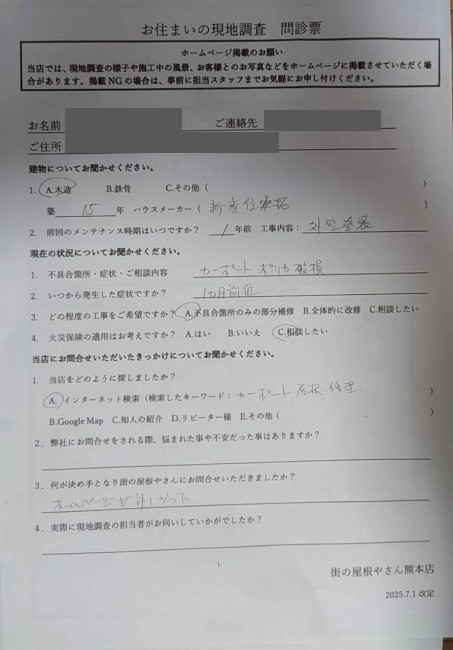 お住まいの現地調査 問診票
ホームページ掲載のお願い
当店では、現地調査の様子や施工中の風景、お客様とのお写真などをホームページに掲載させていただく場
合があります。掲載NGの場合は、事前に担当スタッフまでお気軽にお申し付けください。
お名前 ご連絡先
ご住所
建物についてお聞かせください。
1. A.木造 B.鉄骨 C.その他( )
築 15 年 ハウスメーカー( 新産住宅拓 )
2. 前回のメンテナンス時期はいつですか? 1 年前 工事内容: 外壁塗装
現在の状況についてお聞かせください。
1. 不具合箇所・症状・ご相談内容 カーポート ポリカ 破損
2. いつから発生した症状ですか? 1カ月前位
3. どの程度の工事をご希望ですか? A.不具合箇所のみの部分補修 B.全体的に改修 C.相談したい
4. 火災保険の適用はお考えですか? A.はい B.いいえ C.相談したい
当店にお問合せいただいたきっかけについてお聞かせください。
1. 当店をどのように探しましたか?
A.インターネット検索(検索したキーワード: カーポート 屋根 修理 )
B.Google Map C.知人の紹介 D.リピーター様 E.その他( )
2. 弊社にお問合せをされる際、悩まれた事や不安だった事はありますか?
3. 何が決め手となり街の屋根やさんにお問合せいただきましたか?
ホームページが詳しかった
4. 実際に現地調査の担当者がお伺いしていかがでしたか?
1
街の屋根やさん熊本店
2025.7.1 改定